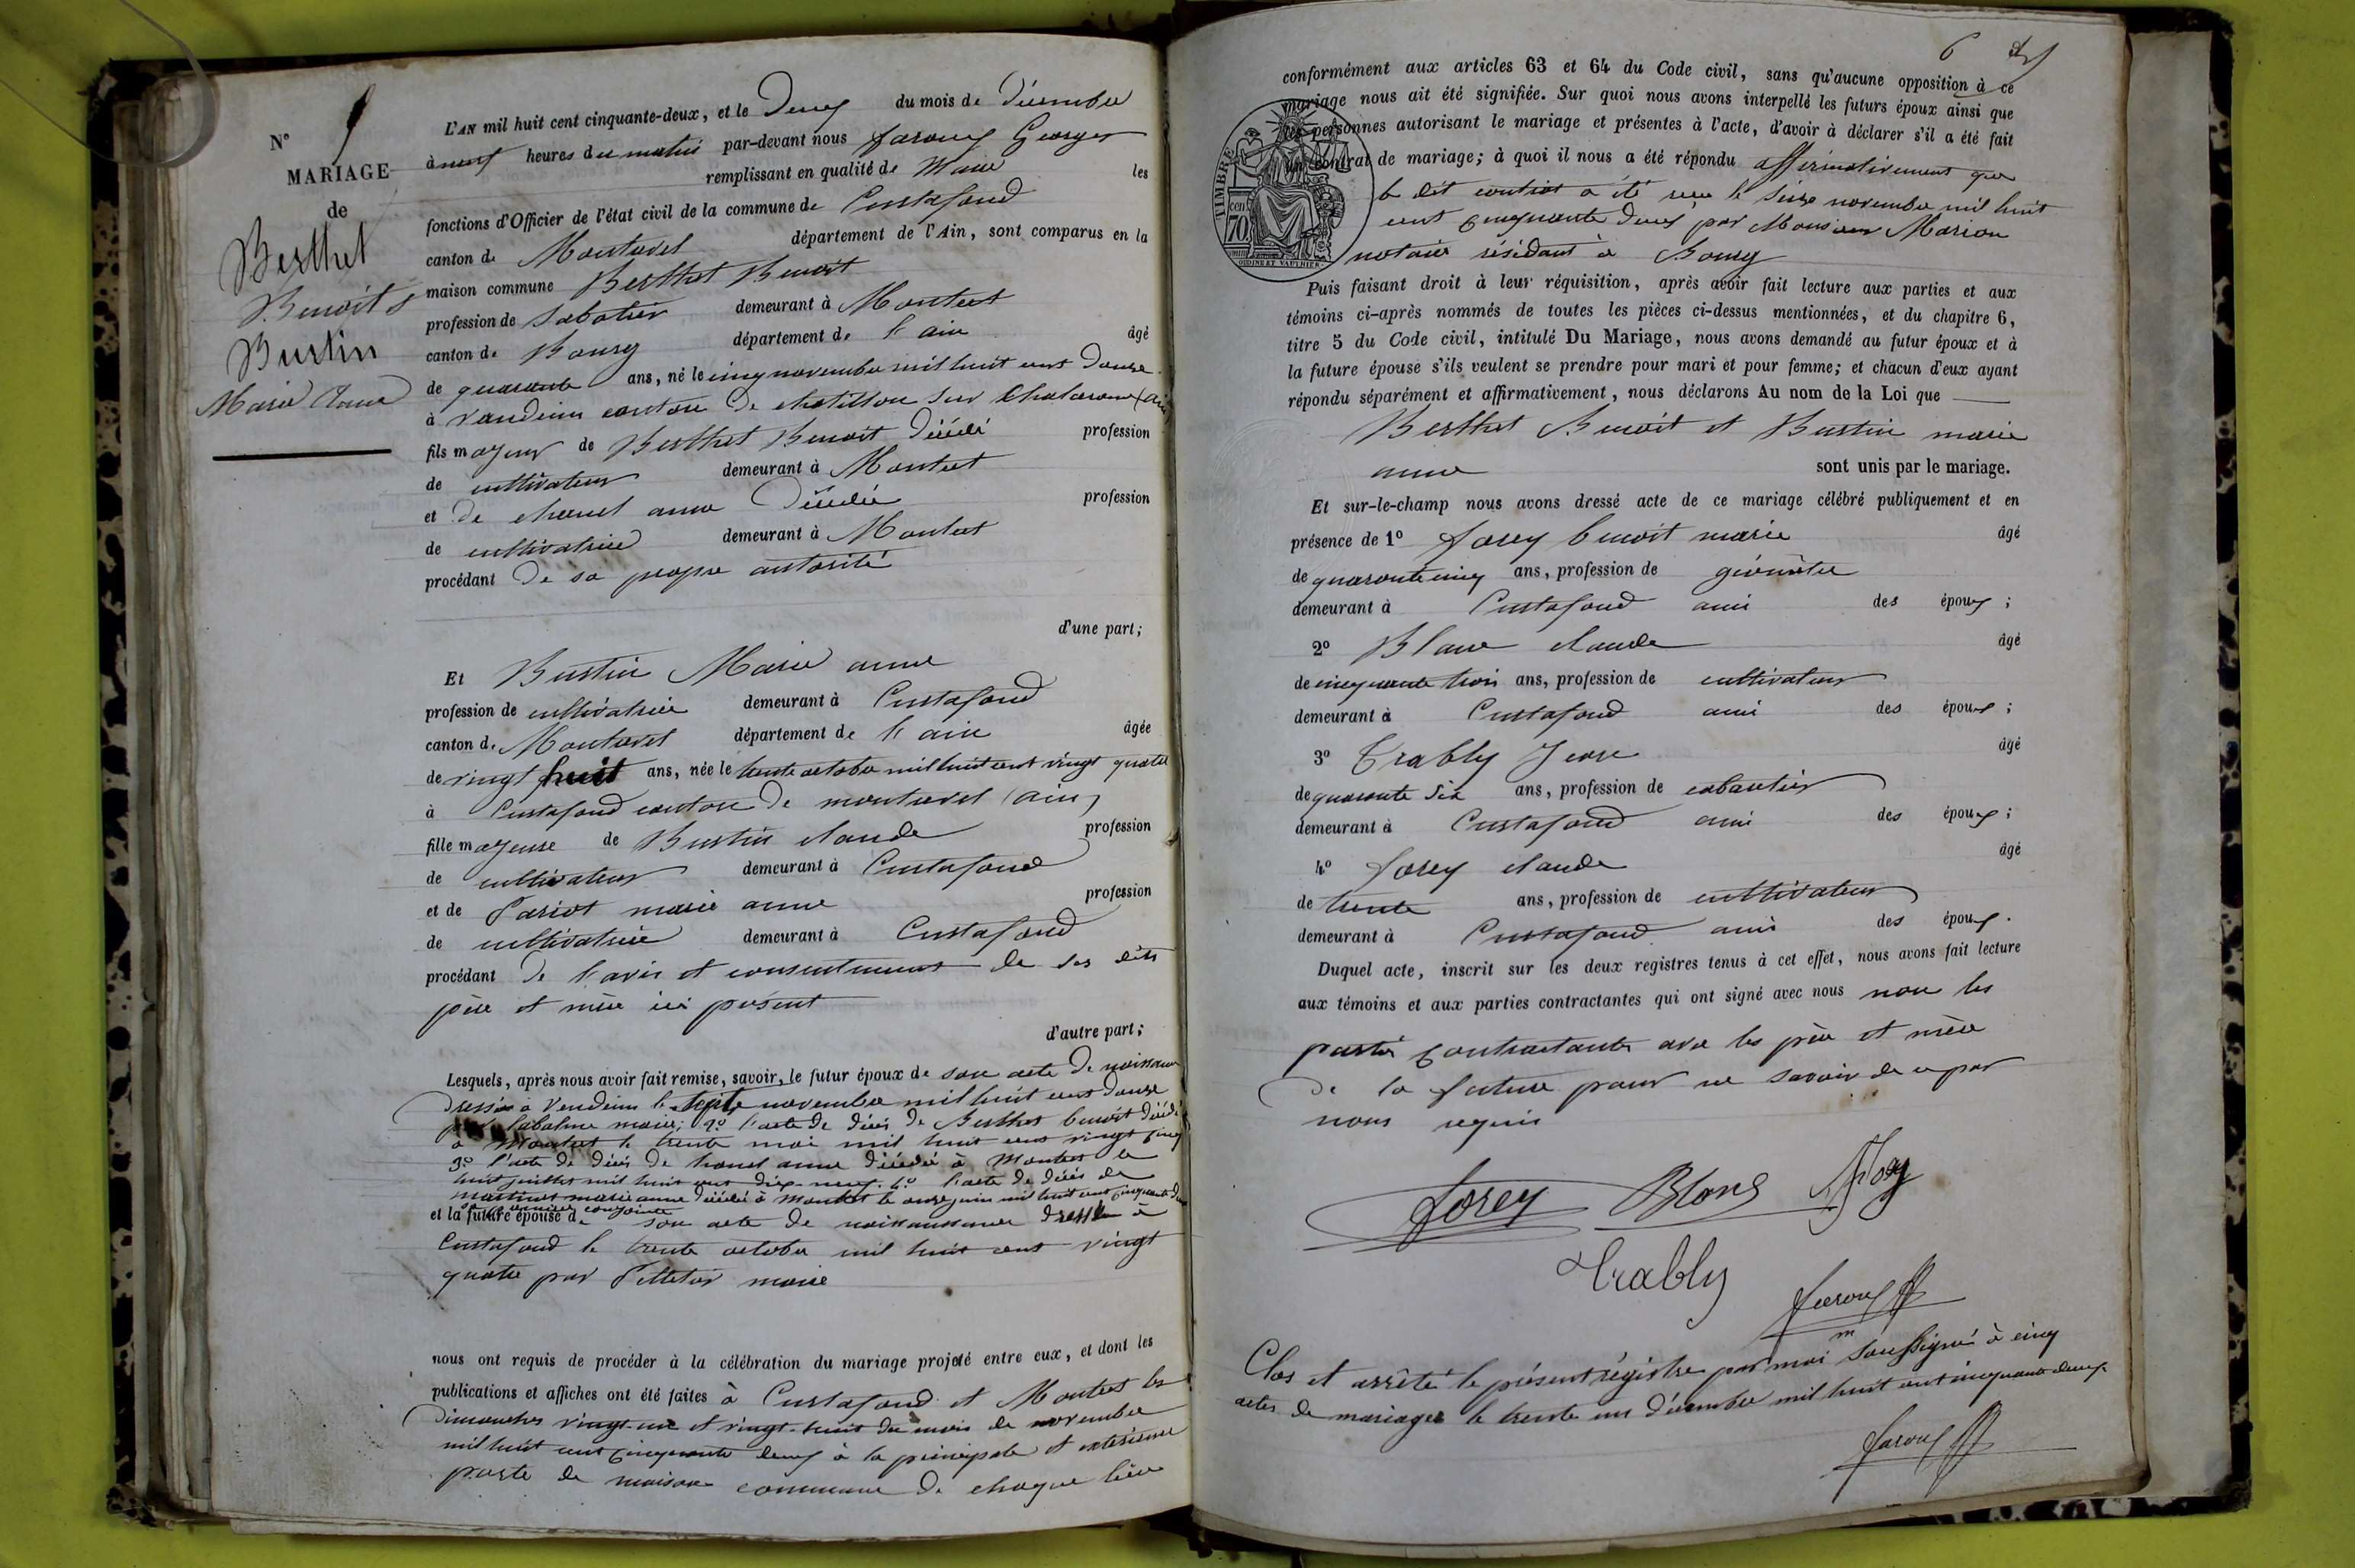 N° 5
MARIAGE
de
Berthet
Benoit &
Burtin
Marie Anne
L'AN mil huit cent cinquante-deux, et le Deux du mois de Décembre
à neuf heures du matin par-devant nous Georges
remplissant en qualité de Maire les
fonctions d'Officier de l'état civil de la commune de Curtafond
canton de Montrevel département de l'Ain, sont comparus en la
maison commune Berthet Benoit
profession de Sabotier demeurant à Montcet
canton de Bourg département de l'ain âgé
de quarante ans, né le cinq novembre mil huit cent douze
à Vandeins canton de chatillon sur Chalaronne (ain
fils majeur de Berthet Benoit Décédé profession
de cultivateur demeurant à Montcet
et de anne Décédée profession
de cultivatrice demeurant à Montcet
procédant De sa propre autorité
d'une part;
Et Burtin Marie anne
profession de cultivatrice demeurant à Curtafond
canton de Montrevel département de l'ain âgée
de vingt huit ans, née le trente octobre mil huit cent vingt quatre
à Curtafond canton de montrevel (ain)
fille majeure de Burtin claude profession
de cultivateur demeurant à Curtafond
et de Pariot marie anne profession
de cultivatrice demeurant à Curtafond
procédant De l'avis et consentement de ses dits
père et mère ici présent
d'autre part;
Lesquels, après nous avoir fait remise, savoir, le futur époux de son acte De naissance
Dressée à Vendeins le novembre mil huit cent douze
maire; 2° l'acte De décès De Berthet benoit Décédé
à Montcet le trente mai mil huit cent vingt cinq
3° l'acte De décès De anne Décédée à Montcet le
huit juillet mil huit cent dix-neuf. 4° l'acte De décès de
marie anne Décédée à Montcet le onze juin mil huit cent cinquante deux
sa première conjointe
et la future épouse de son acte de naissanssance Dressée à
Curtafond le trente octobre mil huit cent vingt
quatre par maire
nous ont requis de procéder à la célébration du mariage projeté entre eux, et dont les
publications et affiches ont été faites à Curtafond et Montcet les
Dimanches vingt-un et vingt-huit du mois de novembre
mil huit cent cinquante deux à la principale et extérieure
porte de maison commune De chaque lieu
6
conformément aux articles 63 et 64 du Code civil, sans qu'aucune opposition à ce
mariage nous ait été signifiée. Sur quoi nous avons interpellé les futurs époux ainsi que
les personnes autorisant le mariage et présentes à l'acte, d'avoir à déclarer s'il a été fait
un contrat de mariage; à quoi il nous a été répondu affirmativement que
le dit contrat a été reçu le seize novembre mil huit
cent cinquante deux par Monsieur Marion
notaire résidant à Bourg
TIMBRE
70 cen
OUDINÉ ET VAUTHIER
Puis faisant droit à leur réquisition, après avoir fait lecture aux parties et aux
témoins ci-après nommés de toutes les pièces ci-dessus mentionnées, et du chapitre 6,
titre 5 du Code civil, intitulé Du Mariage, nous avons demandé au futur époux et à
la future épouse s'ils veulent se prendre pour mari et pour femme; et chacun d'eux ayant
répondu séparément et affirmativement, nous déclarons Au nom de la Loi que
Berthet Benoit et Burtin marie
anne sont unis par le mariage.
Et sur-le-champ nous avons dressé acte de ce mariage célébré publiquement et en
présence de 1° Sorey benoit marie âgé
de quarante cinq ans, profession de géomètre
demeurant à Curtafond ami des époux;
2° Blanc claude âgé
de cinquante trois ans, profession de cultivateur
demeurant à Curtafond ami des époux;
3° Trably Jean âgé
de quarante six ans, profession de cabaretier
demeurant à Curtafond ami des époux;
4° Sorey claude âgé
de trente ans, profession de cultivateur
demeurant à Curtafond ami des époux.
Duquel acte, inscrit sur les deux registres tenus à cet effet, nous avons fait lecture
aux témoins et aux parties contractantes qui ont signé avec nous non les
partie contractante avec les père et mère
De la future pour ne savoir de ce par
nous requis
Sorey Blanc
Trably
Clos et arrêté le présent régistre par moi soussigné à cinq
actes de mariages le trente un décembre mil huit cent cinquante deux